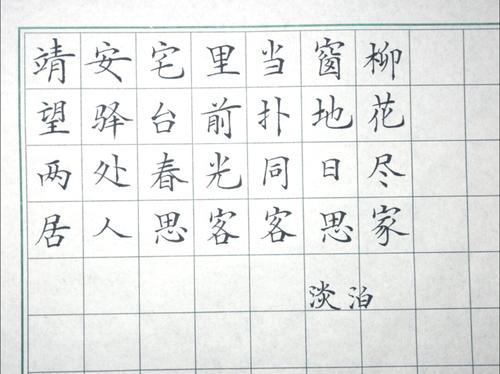 靖安宅里当窗柳
望驿台前扑地花
两处春光同日尽
居人思客客思家
淡泊